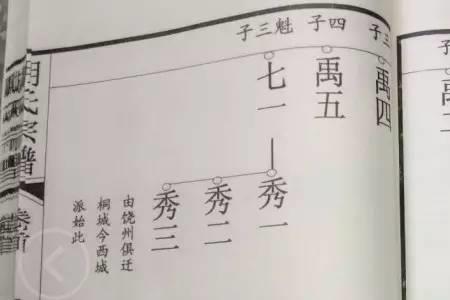 禹四
四子
禹五
魁三子
七一
秀一
秀二
秀三
由饶州俱迁
桐城今西城
派始此
氏宗谱
卷首